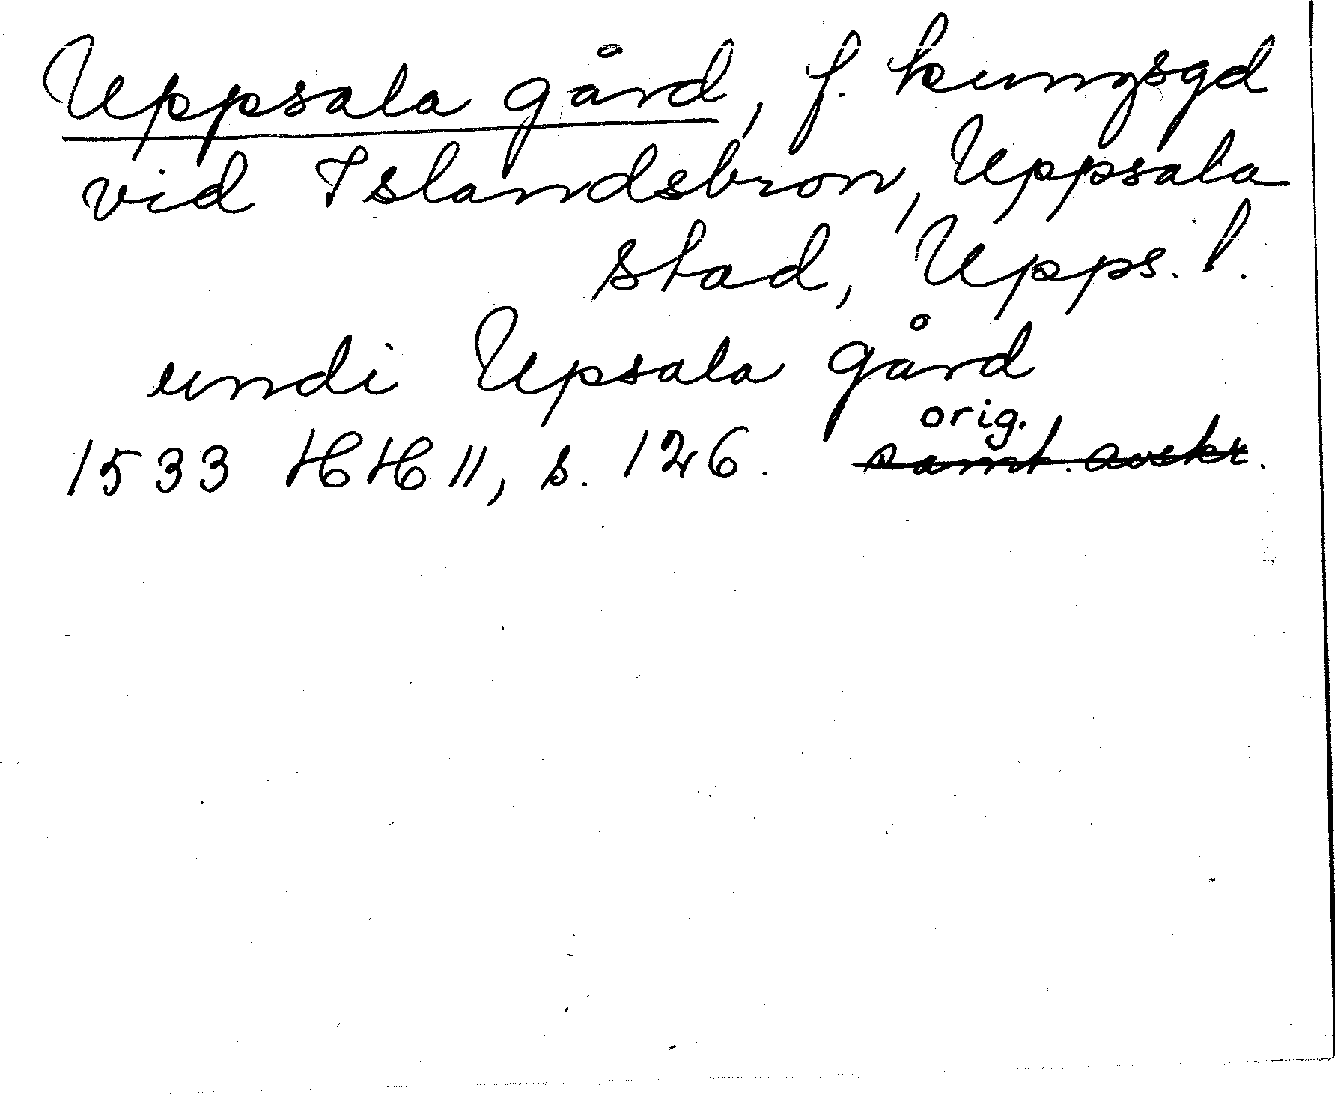 Uppsala gård, f. kungsgd
vid Islandsbron, Uppsala
stad, Upps. l.
undi Upsala gård
orig.
1533 HH 11, s. 126. samt. avskr.